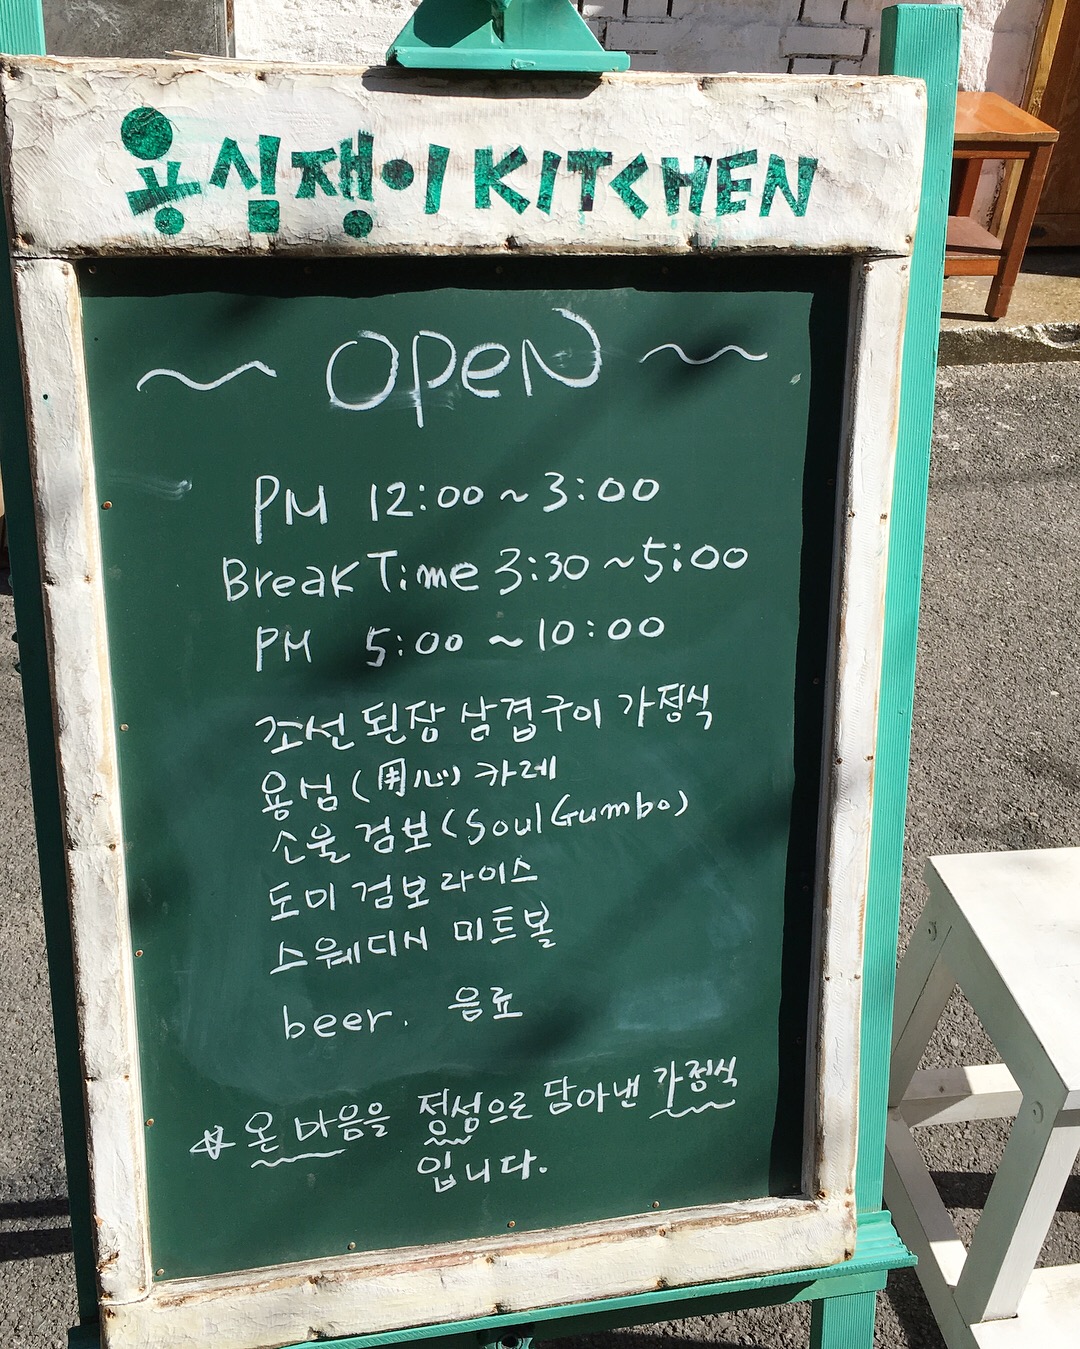 용심쟁이 KITCHEN
~ OPeN ~
PM 12:00 ~ 3:00
Break Time 3:30 ~ 5:00
PM 5:00 ~ 10:00
조선 된장 삼겹구이 가정식
용심 (用心) 카레
소울 검보 (Soul Gumbo)
도미 검보라이스
스웨디시 미트볼
beer. 음료
☆ 온 마음을 정성으로 담아낸 가정식
입니다.